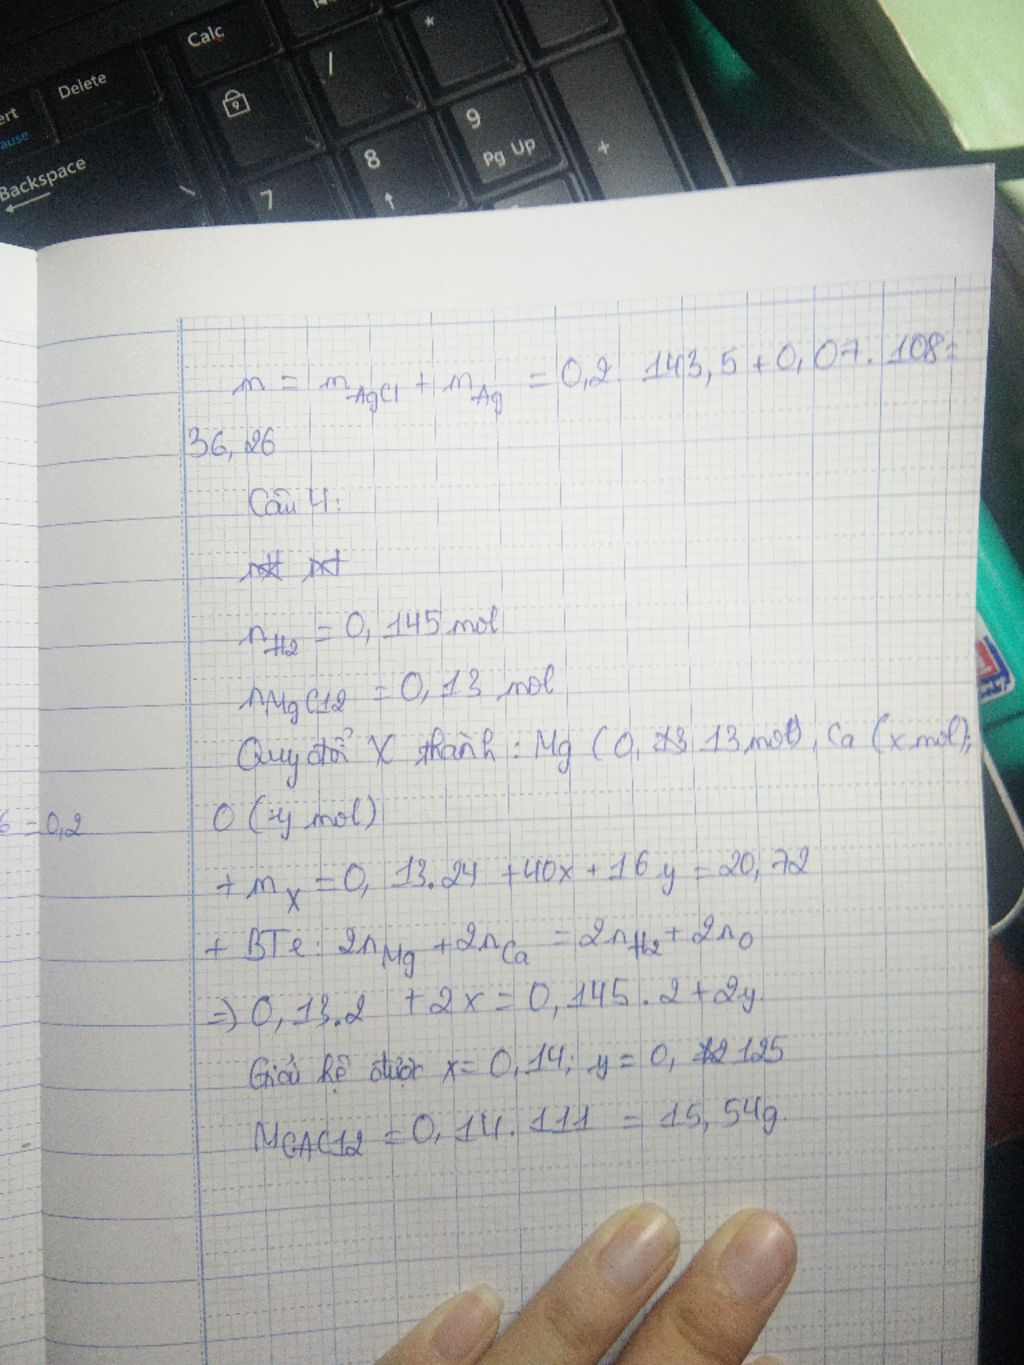 Calc
*
/
Delete
ert
ause
Backspace
9
Pg Up
8
7
+
m = mAgCl + mAg = 0,2. 143,5 + 0,07. 108 =
36,26
Câu 4:
nH2 = 0, 145 mol
nMgCl2 = 0,13 mol
Quy đổi X thành : Mg (0, 13 mol), Ca (x mol);
6 = 0,2
O (y mol)
+ mX = 0, 13.24 + 40x + 16 y = 20, 72
+ BTe: 2nMg + 2nCa = 2nH2 + 2nO
=> 0, 13.2 + 2x = 0, 145. 2 + 2y
Giải hệ được x = 0, 14; y = 0, 125
MCACl2 = 0, 14. 111 = 15, 54g.